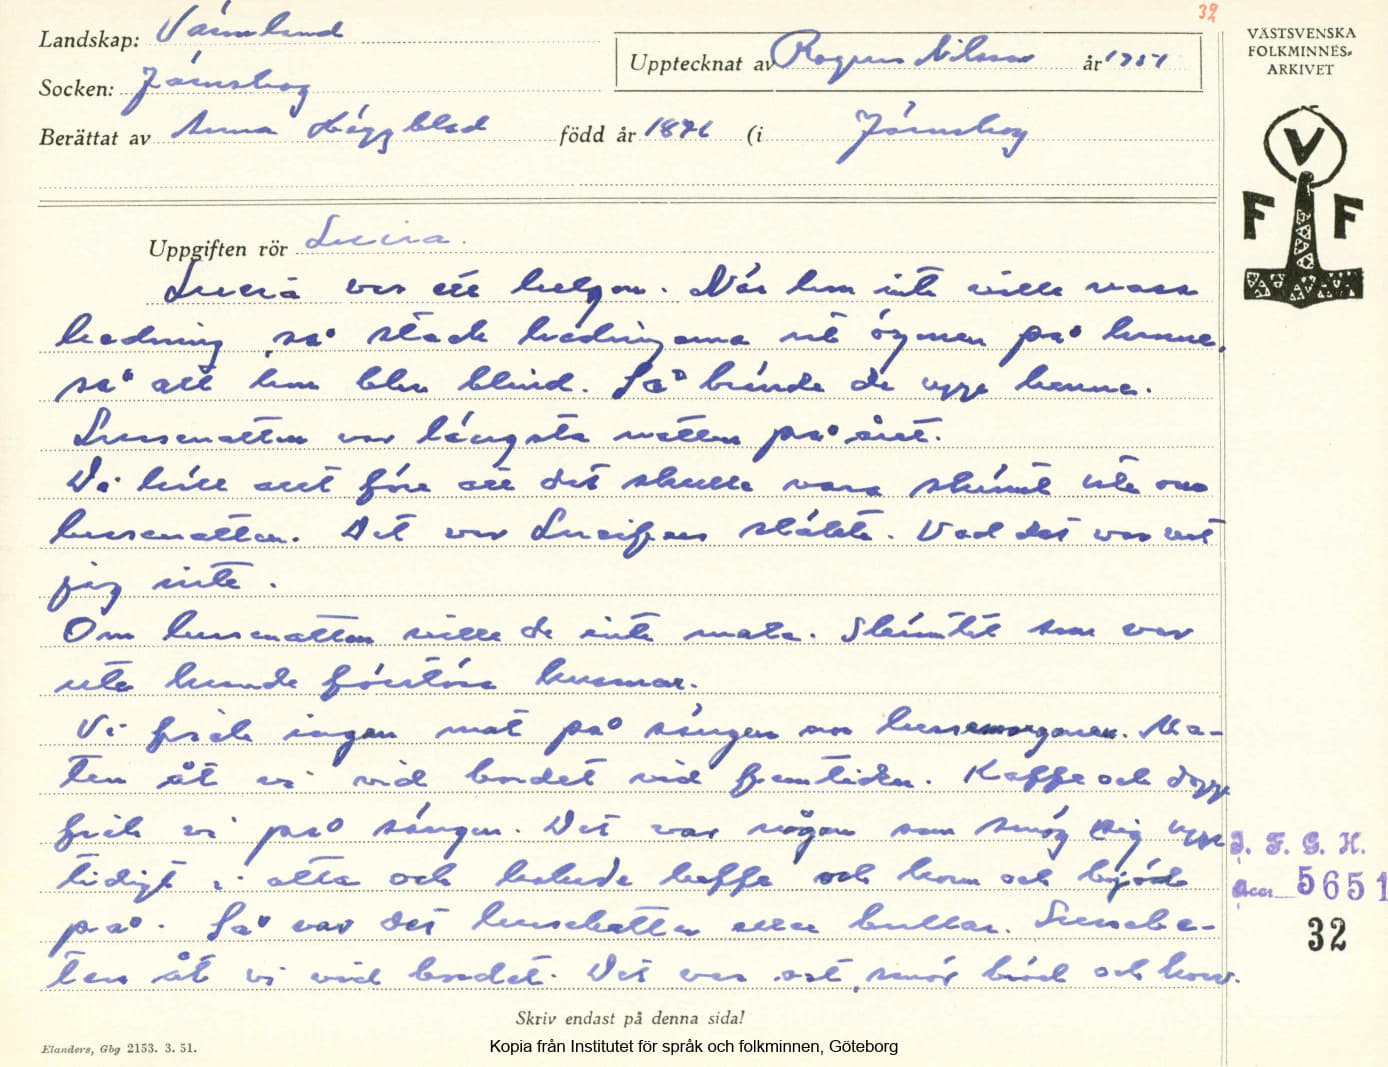 32
Landskap: Värmland
VÄSTSVENSKA
FOLKMINNES-
ARKIVET
Upptecknat av Ragnar Nilsson år 1951
Socken: Järnskog
Berättat av Anna Häggblad född år 1876 (i Järnskog
V
F F
Uppgiften rör Lucia.
Lucia var ett helgon. När hon inte ville vara
hedning, så stack hedningarna ut ögonen på henne,
så att hon blev blind. Så brände de upp henne.
Lussenatten var längsta natten på året.
De höll att före att det skulle vara skämt ute om
lussenatten. Det var Lucifers. Vad det var vet
jag inte.
Om lussenatten ville de inte mala. Skämtet som var
ute kunde förstöra kvarnar.
Vi fick ingen mat på sängen om lussemorgonen. Ma-
ten åt vi vid bordet vid femtiden. Kaffe och dopp
fick vi på sängen. Det var någon som smög sig upp
tidigt i otta och kokade kaffe och kom och bjöd
på. Så var det lussekatter eller bullar. Lussebe-
ten åt vi vid bordet. Det var ost, smör bröd och korv.
I. F. G. H.
Acc. 5651
32
Skriv endast på denna sida!
Elanders, Gbg 2153. 3. 51.
Kopia från Institutet för språk och folkminnen, Göteborg